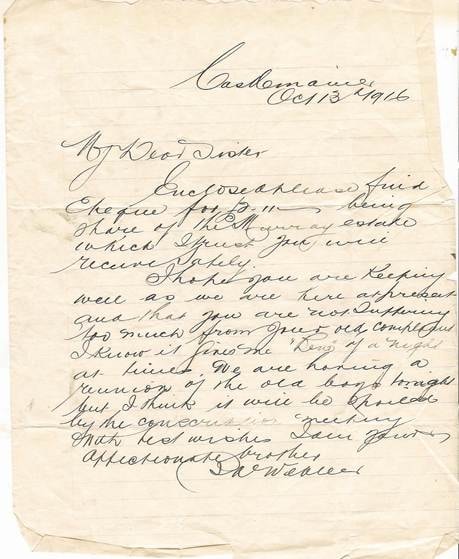 Castlemaine
Oct 13th 1916
My Dear Sister
Enclosed please find
Cheque for being
share of the Murray estate
which I trust you will
receive safely.
I hope you are keeping
well as we are here at present
and that you are not suffering
too much from your old complaint
I know it gives me of a night
at times. We are having a
reunion of the old boys tonight
but I think it will be spoiled
by the conscription meeting
With best wishes I am your
affectionate brother